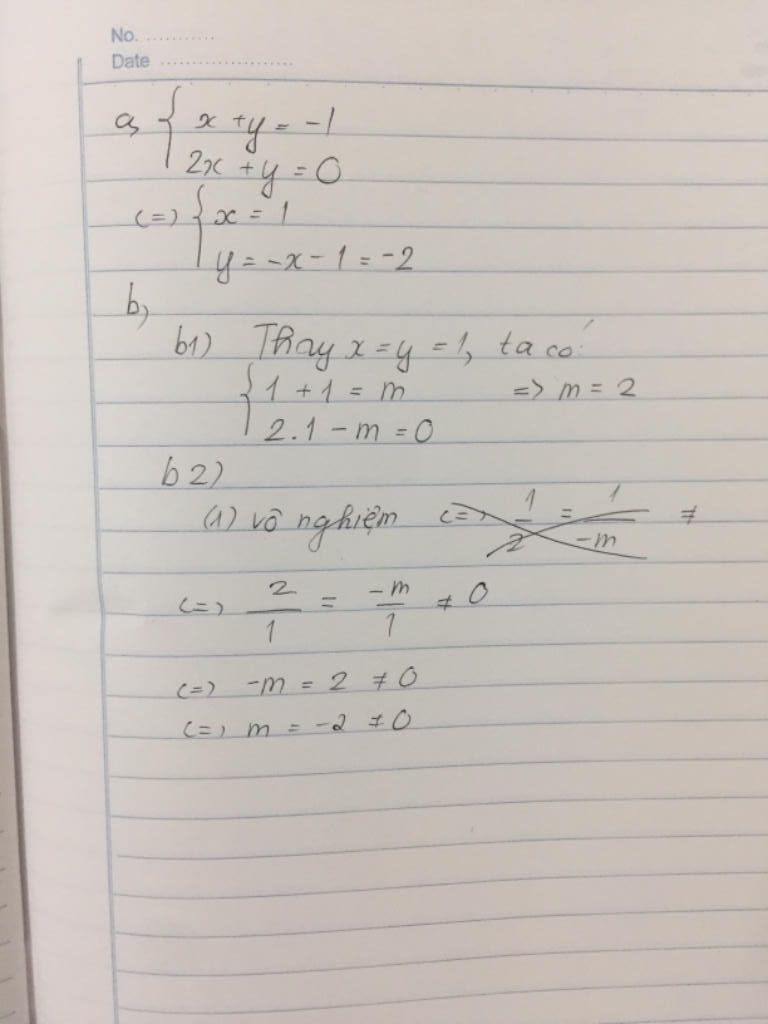 No. ...........
Date ......................
a, { x + y = -1
2x + y = 0
<=> { x = 1
y = -x - 1 = -2
b,
b1) Thay x = y = 1, ta có:
{ 1 + 1 = m => m = 2
2.1 - m = 0
b2)
(1) vô nghiệm <=> 1/2 = 1/-m ≠
<=> 2/1 = -m/1 ≠ 0
<=> -m = 2 ≠ 0
<=> m = -2 ≠ 0